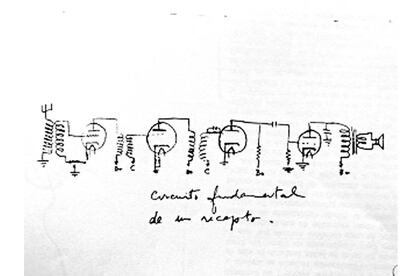 Circuito fundamental
de un recepto.